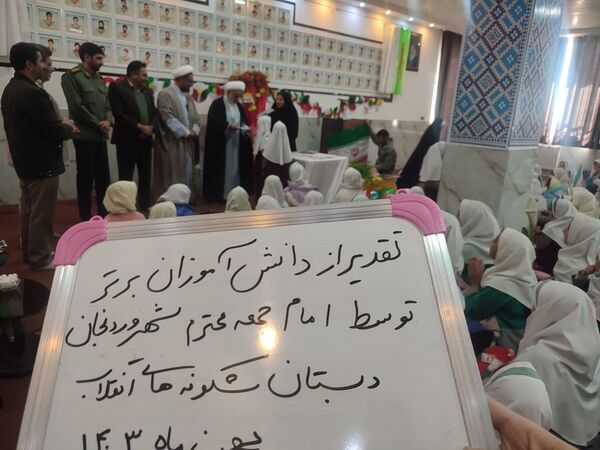 تقدیر از دانش آموزان برتر
توسط امام جمعه محترم شهر وردنجان
دبستان شکوفه های انقلاب
بهمن ماه ۱۴۰۳